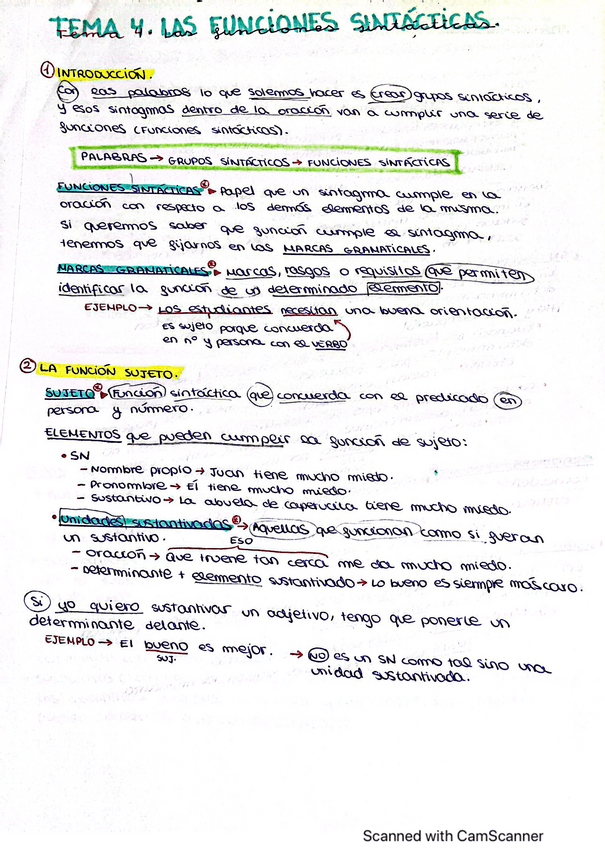 TEMA 4. LAS FUNCIONES SINTÁCTICAS.
① INTRODUCCIÓN.
Con las palabras lo que solemos hacer es crear grupos sintácticos,
y esos sintagmas dentro de la oración van a cumplir una serie de
funciones (funciones sintácticas).
PALABRAS → GRUPOS SINTÁCTICOS → FUNCIONES SINTÁCTICAS
FUNCIONES SINTÁCTICAS ▸ Papel que un sintagma cumple en la
oración con respecto a los demás elementos de la misma.
Si queremos saber que función cumple el sintagma,
tenemos que fijarnos en las MARCAS GRAMATICALES.
MARCAS GRAMATICALES ▸ Marcas, rasgos o requisitos que permiten
identificar la función de un determinado elemento.
EJEMPLO → Los estudiantes necesitan una buena orientación.
es sujeto porque concuerda
en nº y persona con el VERBO
② LA FUNCIÓN SUJETO.
SUJETO ▸ Función sintáctica que concuerda con el predicado en
persona y número.
ELEMENTOS que pueden cumplir la función de sujeto:
• SN
- Nombre propio → Juan tiene mucho miedo.
- Pronombre → Él tiene mucho miedo.
- Sustantivo → La abuela de caperucita tiene mucho miedo.
• Unidades sustantivadas → Aquellas que funcionan como si fueran
un sustantivo.
ESO
- Oración → Que truene tan cerca me da mucho miedo.
- Determinante + elemento sustantivado → Lo bueno es siempre más caro.
Si yo quiero sustantivar un adjetivo, tengo que ponerle un
determinante delante.
EJEMPLO → El bueno es mejor. → NO es un SN como tal sino una
SUJ.
unidad sustantivada.
Scanned with CamScanner